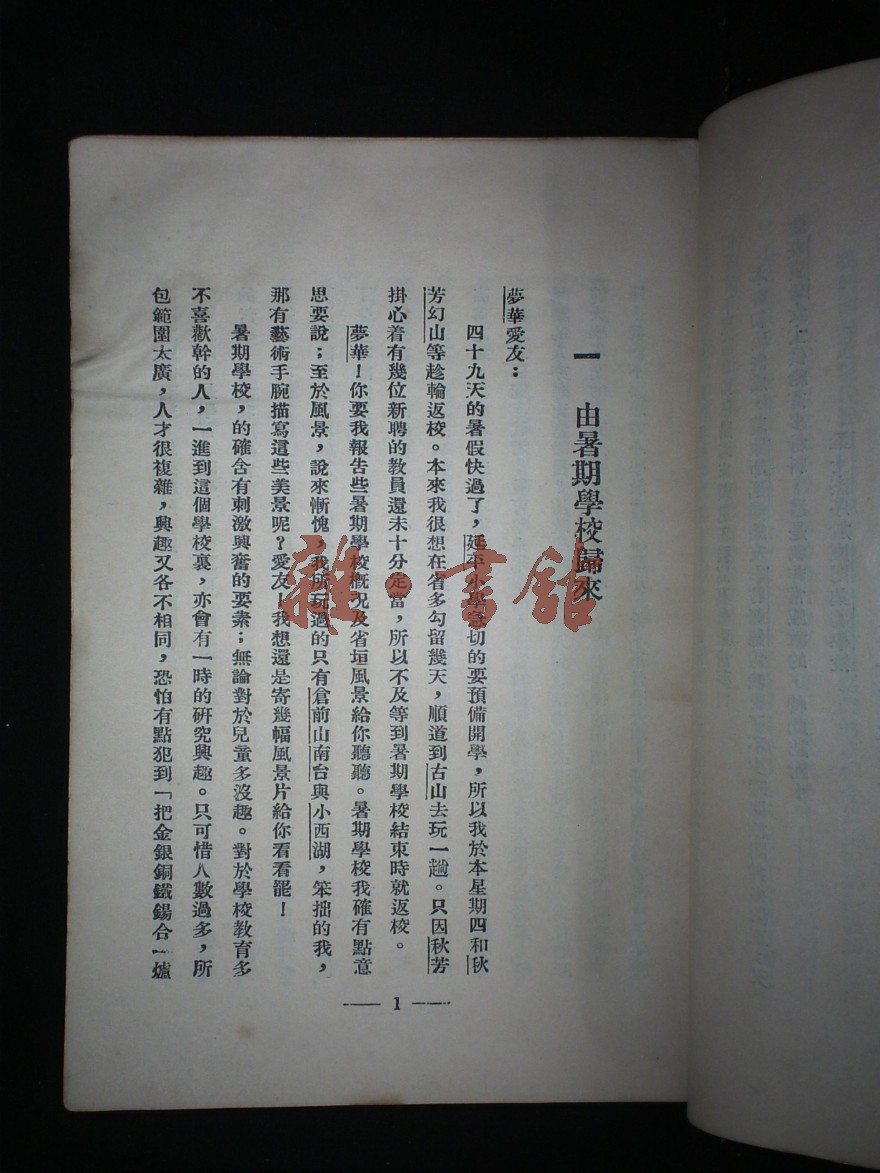 一　由暑期學校歸來
夢華愛友：
四十九天的暑假快過了，延平小學急切的要預備開學，所以我於本星期四和秋
芳幻山等趁輪返校。本來我很想在省多勾留幾天，順道到古山去玩一趟。只因秋芳
掛心着有幾位新聘的教員還未十分定當，所以不及等到暑期學校結束時就返校。
夢華！你要我報告些暑期學校概况及省垣風景給你聽聽。暑期學校我確有點意
思要說；至於風景，說來慚愧，我所玩過的只有倉前山南台與小西湖，笨拙的我，
那有藝術手腕描寫這些美景呢？愛友！我想還是寄幾幅風景片給你看看罷！
暑期學校，的確含有刺激興奮的要素；無論對於兒童多沒趣。對於學校教育多
不喜歡幹的人，一進到這個學校裏，亦會有一時的研究興趣。只可惜人數過多，所
包範圍太廣，人才很複雜，興趣又各不相同，恐怕有點犯到「把金銀銅鐵錫合一爐
1
雜·書館